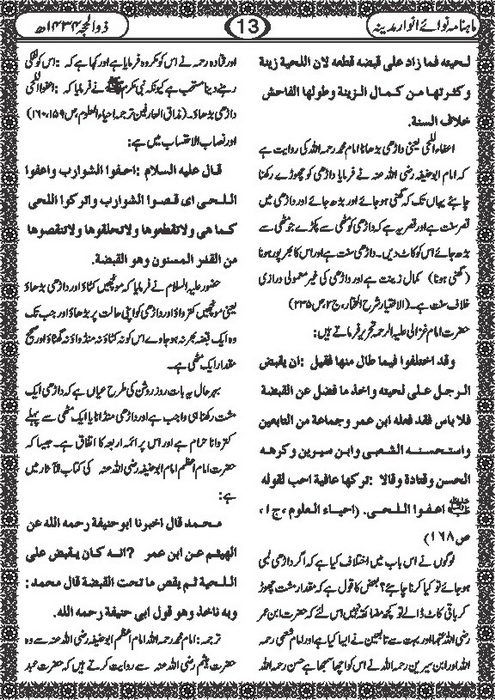 ماہنامہ نوائے انوار مدینہ
13
ذوالحجہ ۱۴۳۴ھ
لحيته فما زاد على قبضه قطعه لان اللحية زينة
وكثرتها من كمال الزينة وطولها الفاحش
خلاف السنة.
اعفاء اللحی یعنی داڑھی بڑھانا امام محمد رحمہ اللہ کی روایت ہے
کہ امام ابوحنیفہ رضی اللہ عنہ نے فرمایا داڑھی کو چھوڑے رکھنا
چاہئے یہاں تک کہ گھنی ہو جائے اور بڑھ جائے اور داڑھی میں
قصر سنت ہے اور قصر یہ ہے کہ داڑھی کو مٹھی سے پکڑے جو مٹھی سے
بڑھ جائے اس کو کاٹ دیں۔ داڑھی سنت ہے اور اس کا بھرپور ہونا
(گھنی ہونا) کمال زینت ہے اور داڑھی کی غیر معمولی درازی
خلاف سنت ہے۔ (الاختیار شرح المختار، ج۲، ص۲۳۵)
حضرت امام غزالی علیہ الرحمہ تحریر فرماتے ہیں:
وقد اختلفوا فيما طال منها فقيل :ان يقبض
الرجل على لحيته واخذ ما فضل عن القبضة
فلا باس فقد فعله ابن عمر وجماعة من التابعين
واستحسنه الشعبى وابن سيرين وكرهه
الحسن وقتادة وقالا :تركها عافية احب لقوله
ﷺ اعفوا اللحى. (احياء العلوم ،ج ا،
ص۱۶۸)
لوگوں نے اس باب میں اختلاف کیا ہے کہ اگر داڑھی لمبی
ہو جائے تو کیا کرنا چاہئے؟ بعض کا قول ہے کہ مقدار مشت چھوڑ
کر باقی کاٹ ڈالے تو کچھ مضائقہ نہیں اس لئے کہ حضرت ابن عمر
رضی اللہ عنہما اور بہت سے تابعین نے ایسا کیا ہے اور امام شعبی رحمہ
اللہ اور ابن سیرین رحمہ اللہ نے اس کو اچھا سمجھا ہے حسن رحمہ اللہ
اور قتادہ رحمہ اللہ نے اس کو مکروہ فرمایا ہے اور کہا ہے کہ :اس کو لٹکی
رہنے دینا مستحب ہے کیونکہ نبی مکرم ﷺ نے فرمایا کہ :اعفوا اللحی
داڑھی بڑھاؤ۔ (مذاق العارفین ترجمہ احیاء العلوم، ص۱۵۹، ۱۶۰)
اور نصاب الاحتساب میں ہے:
قال عليه السلام :احفوا الشوارب واعفوا
اللحى اى قصوا الشوارب واتركوا اللحى
كما هى ولا تقطعوها ولا تحلقوها ولا تنقصوها
من القدر المسنون وهو القبضة.
حضور علیہ السلام نے فرمایا کہ مونچھیں کٹاؤ اور داڑھی بڑھاؤ
یعنی مونچھیں کترواؤ اور داڑھی کو اپنی حالت پر بڑھاؤ اور جب تک
وہ ایک قبضہ بھر نہ ہو جاوے اس کو نہ کٹاؤ نہ منڈواؤ نہ گھٹاؤ اور صحیح
مقدار ایک مٹھی ہے۔
بہرحال یہ بات روز روشن کی طرح عیاں ہے کہ داڑھی ایک
مشت رکھنا ہی واجب ہے اور داڑھی منڈانا یا ایک مٹھی سے پہلے
کتروانا حرام ہے اور اس پر ائمہ اربعہ کا اتفاق ہے۔ جیسا کہ
حضرت امام اعظم امام ابوحنیفہ رضی اللہ عنہ کی کتاب الآثار میں
ہے:
محمد قال اخبرنا ابو حنيفة رحمه الله عن
الهيثم عن ابن عمر ؟انه كان يقبض على
اللحية ثم يقص ما تحت القبضة قال محمد :
وبه ناخذ وهو قول ابى حنيفة رحمه الله.
ترجمہ: امام محمد رحمہ اللہ امام اعظم ابوحنیفہ رضی اللہ عنہ سے وہ
حضرت ہیثم رضی اللہ عنہ سے روایت کرتے ہیں کہ حضرت عبد